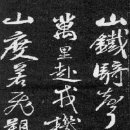 山鐵騎聲
萬里赴戎機
山度若飛朔